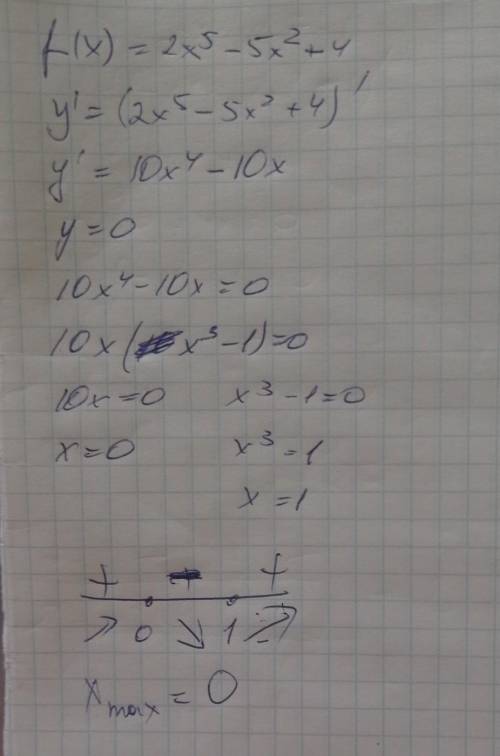 f(x) = 2x⁵ - 5x² + 4
y' = (2x⁵ - 5x² + 4)'
y' = 10x⁴ - 10x
y = 0
10x⁴ - 10x = 0
10x(x³ - 1) = 0
10x = 0 x³ - 1 = 0
x = 0 x³ = 1
x = 1
+ - +
↗ 0 ↘ 1 ↗
x max = 0